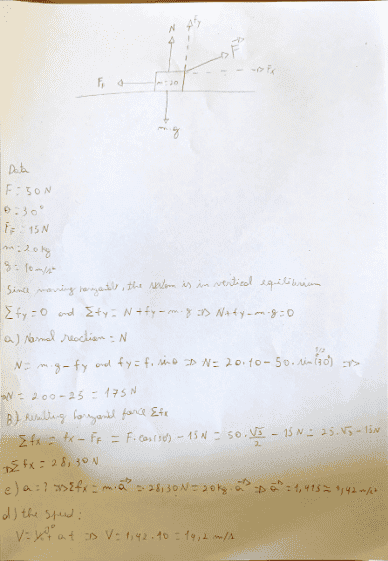 N
Fy
F
Fx
Ff
m=20
m.g
Data
F = 50N
θ = 30°
Ff = 15N
m = 20kg
g = 10m/s²
Since moving horizontal, the system is in vertical equilibrium
Σfy = 0 and Σfy = N + fy - m.g ⇒ N + fy - m.g = 0
a) Normal reaction = N
N = m.g - fy and fy = f. sin θ ⇒ N = 20.10 - 50. sin(30°) ⇒ 1/2
⇒ N = 200 - 25 = 175N
B) Resulting horizontal force Σfx
Σfx = fx - Ff = F. cos(30) - 15N = 50. √3/2 - 15N = 25.√3 - 15N
⇒ Σfx = 28,30N
c) a = ? ⇒ Σfx = m.a ⇒ 28,30N = 20kg. a ⇒ a = 1,415 ≈ 1,42 m/s²
d) the speed:
V = V₀ + at ⇒ V = 1,42.10 = 14,2 m/s